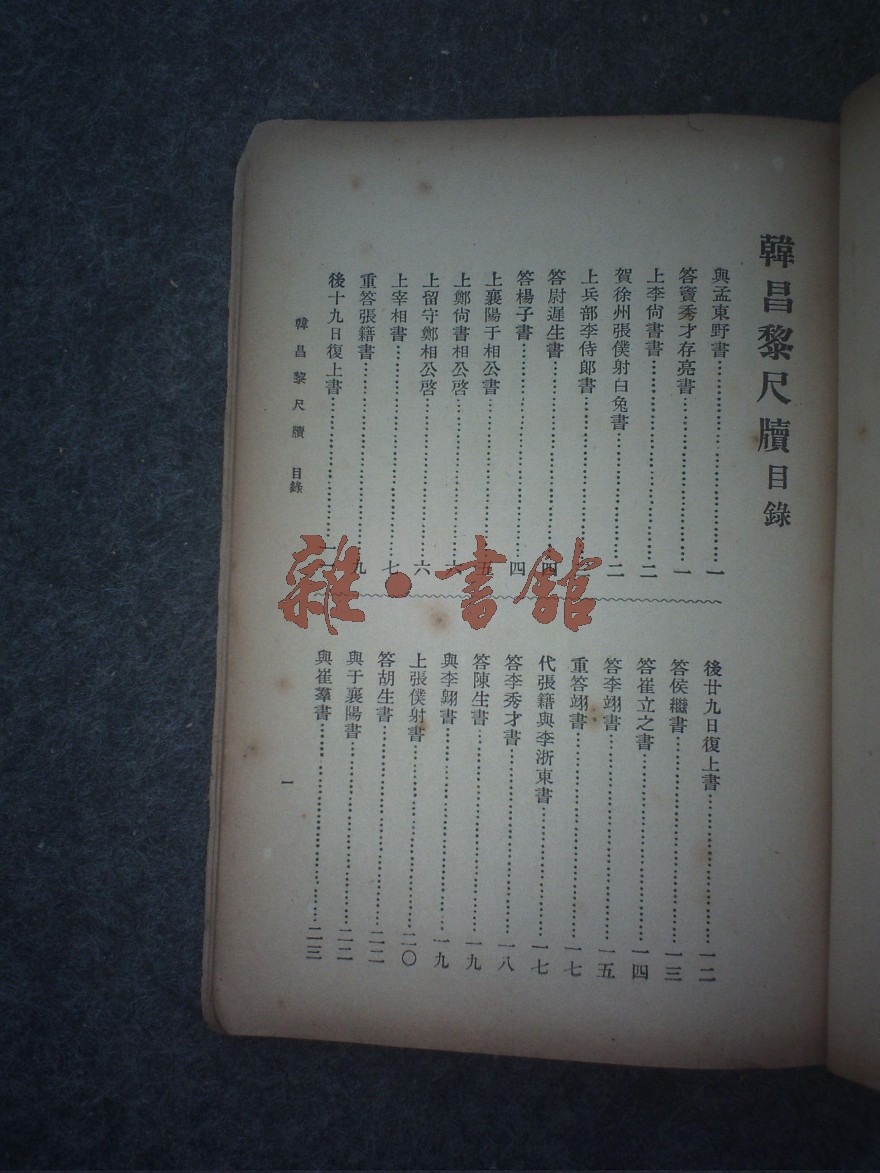 韓昌黎尺牘目錄
與孟東野書……一
答竇秀才存亮書……一
上李尙書書……二
賀徐州張僕射白兔書……二
上兵部李侍郎書……
答尉遲生書……四
答楊子書……四
上襄陽于相公書……五
上鄭尙書相公啓……六
上留守鄭相公啓……六
上宰相書……七
重答張籍書……九
後十九日復上書……
後廿九日復上書……一二
答侯繼書……一三
答崔立之書……一四
答李翊書……一五
重答翊書……一七
代張籍與李浙東書……一七
答李秀才書……一八
答陳生書……一九
與李翺書……一九
上張僕射書……二〇
答胡生書……二二
與于襄陽書……二二
與崔羣書……二三
韓昌黎尺牘 目錄
一
雜·書館